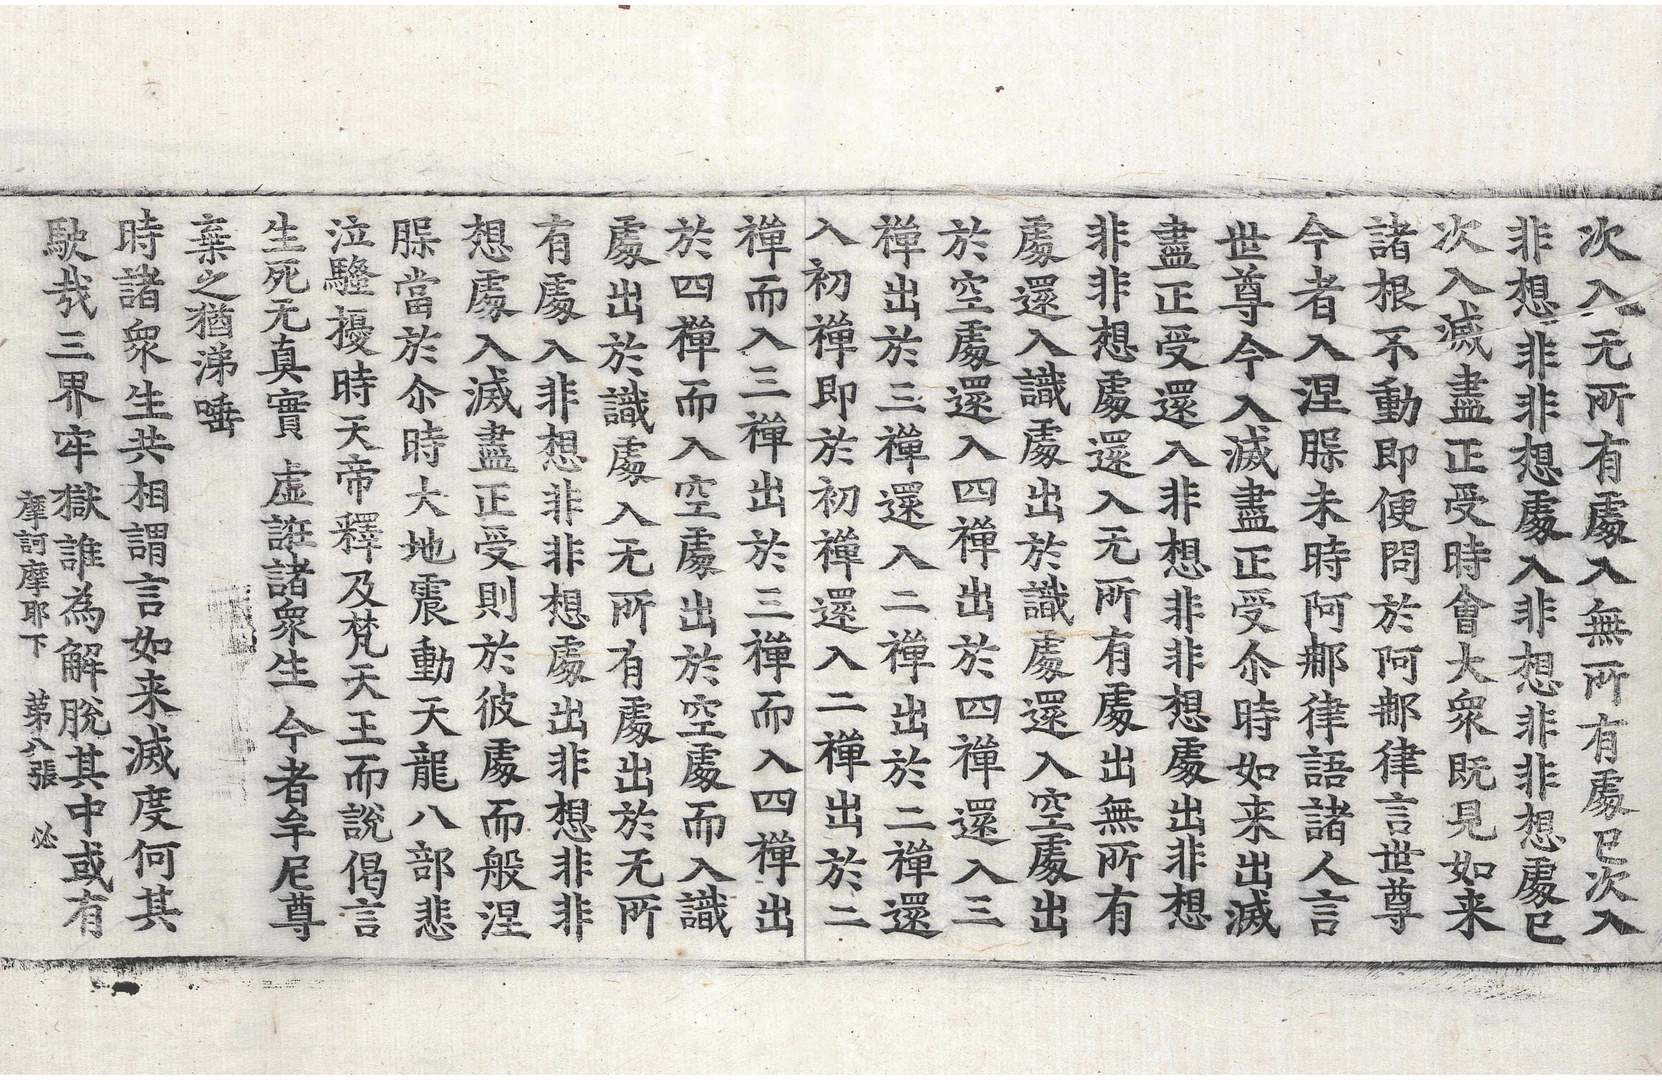 次入无所有處入無所有處已次入
非想非非想處入非想非非想處已
次入滅盡正受時會大衆既見如来
諸根不動即便問於阿㝹律言世尊
今者入涅槃未時阿㝹律語諸人言
世尊今入滅盡正受尒時如来出滅
盡正受還入非想非非想處出非想
非非想處還入无所有處出無所有
處還入識處出於識處還入空處出
於空處還入四禪出於四禪還入三
禪出於三禪還入二禪出於二禪還
入初禪即於初禪還入二禪出於二
禪而入三禪出於三禪而入四禪出
於四禪而入空處出於空處而入識
處出於識處入无所有處出於无所
有處入非想非非想處出非想非非
想處入滅盡正受則於彼處而般涅
槃當於尒時大地震動天龍八部悲
泣騷擾時天帝釋及梵天王而說偈言
生死无真實 虛誑諸衆生 今者牟尼尊
棄之猶涕唾
時諸衆生共相謂言如来滅度何其
駛哉三界牢獄誰為解脫其中或有
摩訶摩耶下 苐八張 必